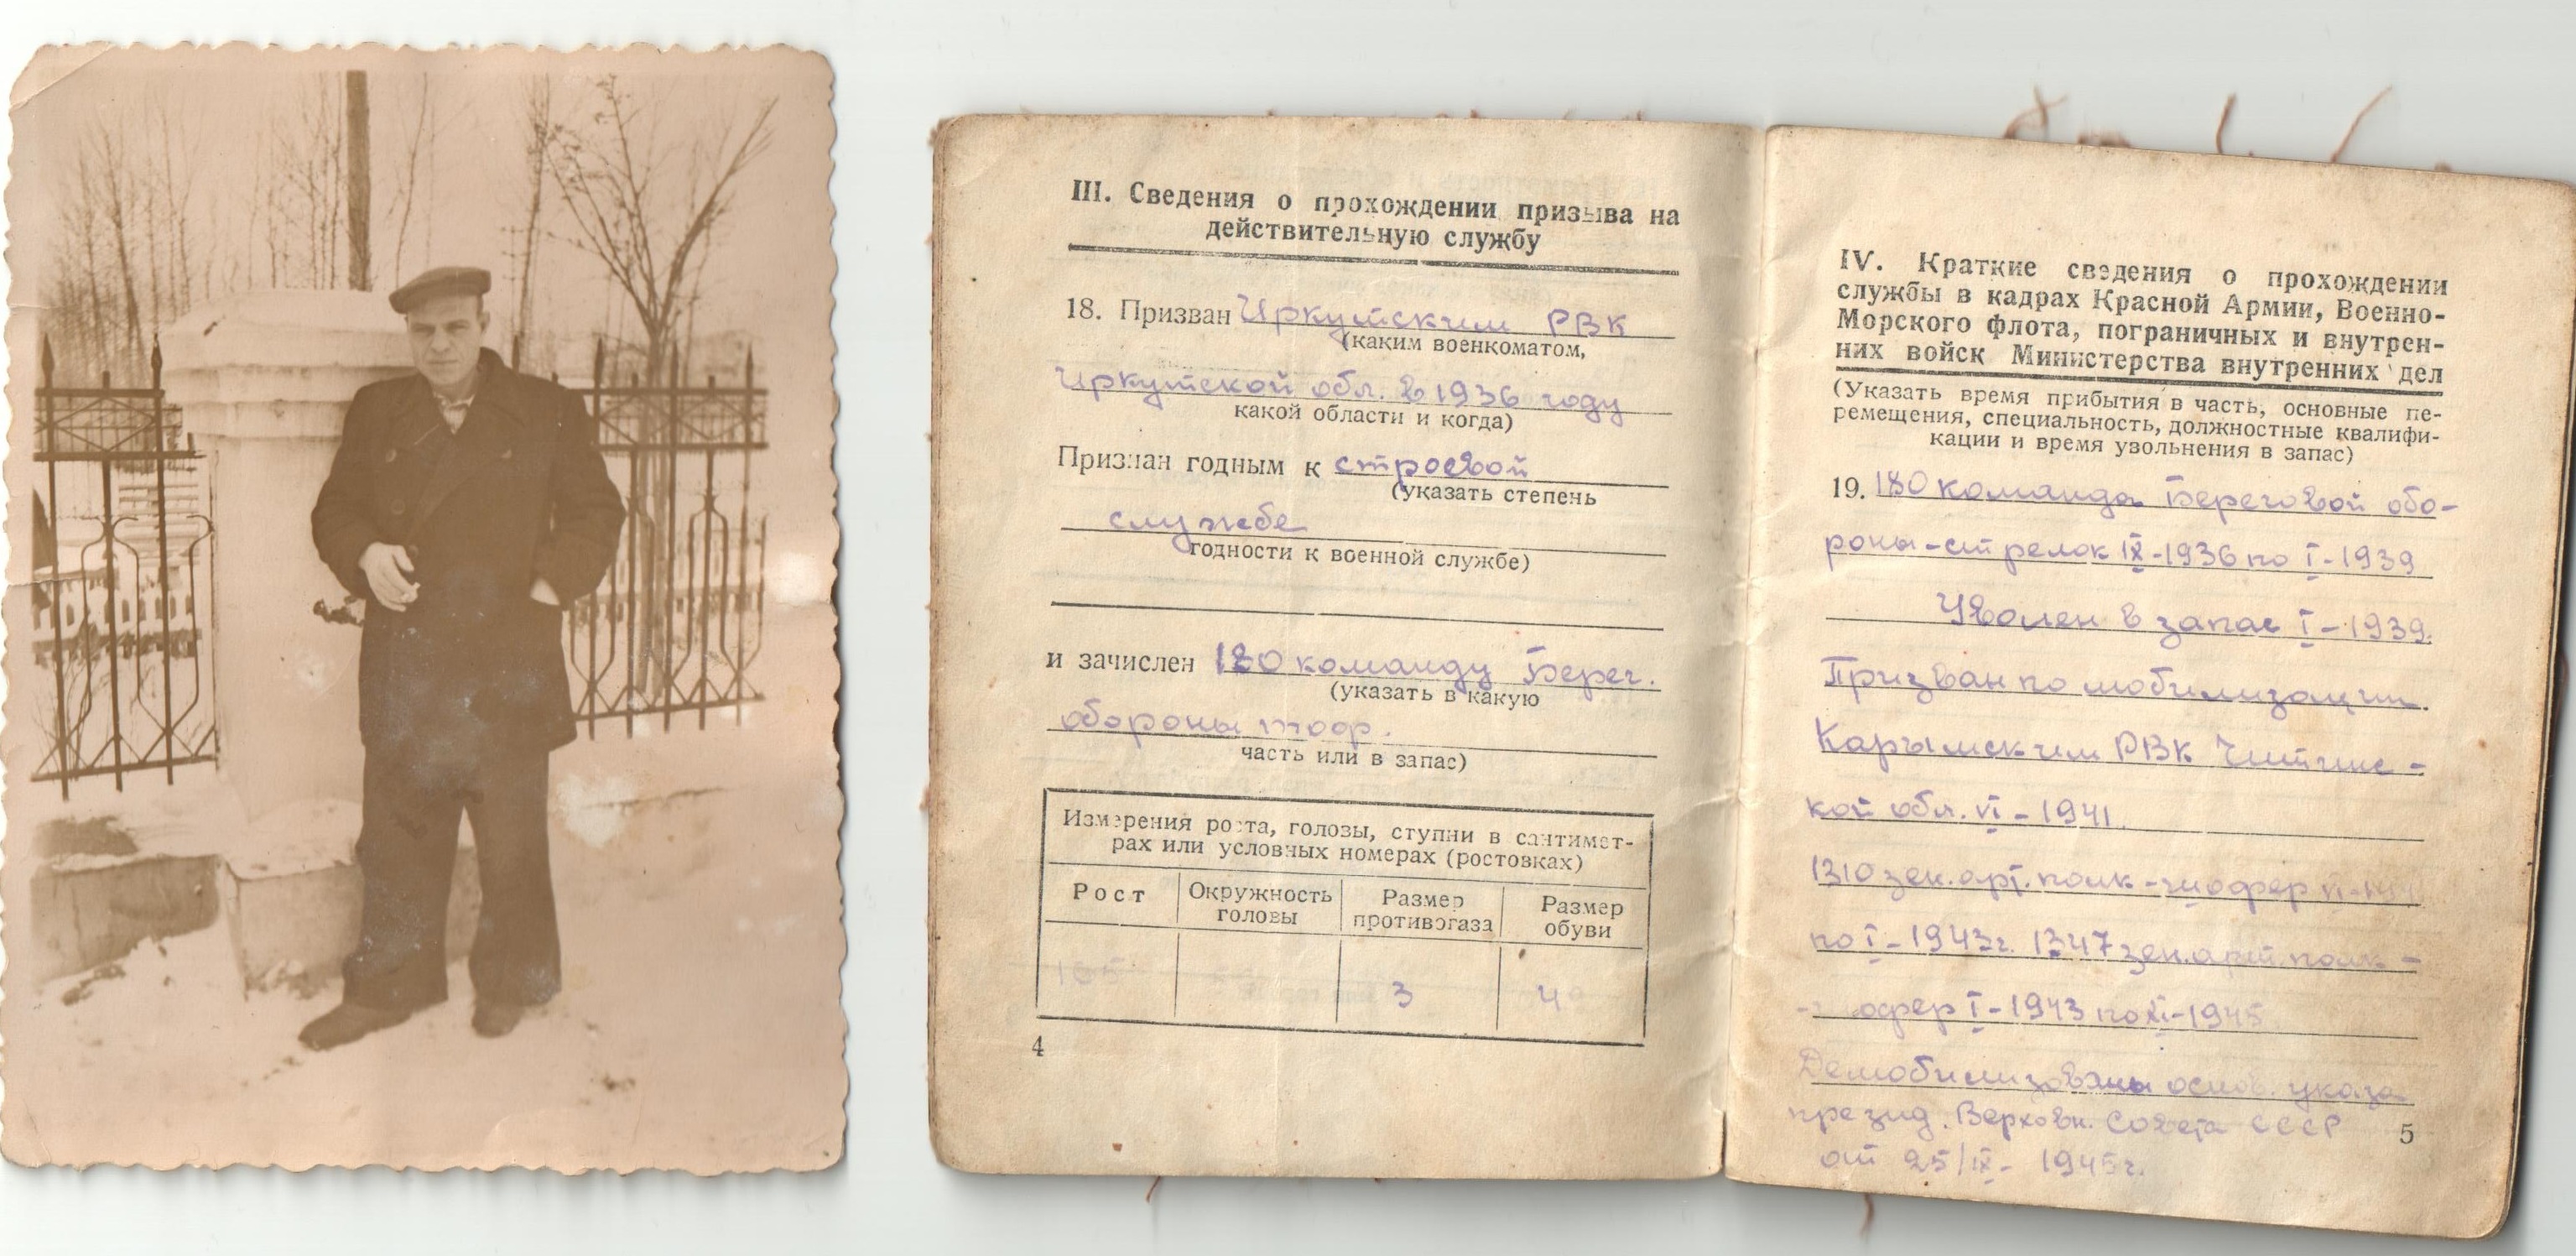 III. Сведения о прохождении призыва на
действительную службу
18. Призван Иркутским РВК
(каким военкоматом,
Иркутской обл. в 1936 году
какой области и когда)
Признан годным к строевой
(указать степень
службе
годности к военной службе)
и зачислен 180 команду Берег.
(указать в какую
обороны
часть или в запас)
Измерения роста, головы, ступни в сантимет-
рах или условных номерах (ростовках)
Рост
Окружность
головы
Размер
противогаза
Размер
обуви
3
4
IV. Краткие сведения о прохождении
службы в кадрах Красной Армии, Военно-
Морского флота, пограничных и внутрен-
них войск Министерства внутренних дел
(Указать время прибытия в часть, основные пе-
ремещения, специальность, должностные квалифи-
кации и время увольнения в запас)
19. 180 команда Береговой обо-
роны-стрелок IX-1936 по I-1939
Уволен в запас I-1939.
Призван по мобилизации
Карымским РВК Читинс-
кой обл. VI-1941.
1310 зен.арт. полк-шофер
по I-1943г. 1347 зен.арт полк-
офер I-1943 по XI-1945
Демобилизован основ. указа
презид. Верховн. Совета СССР
от 25/IX-1945г.
5